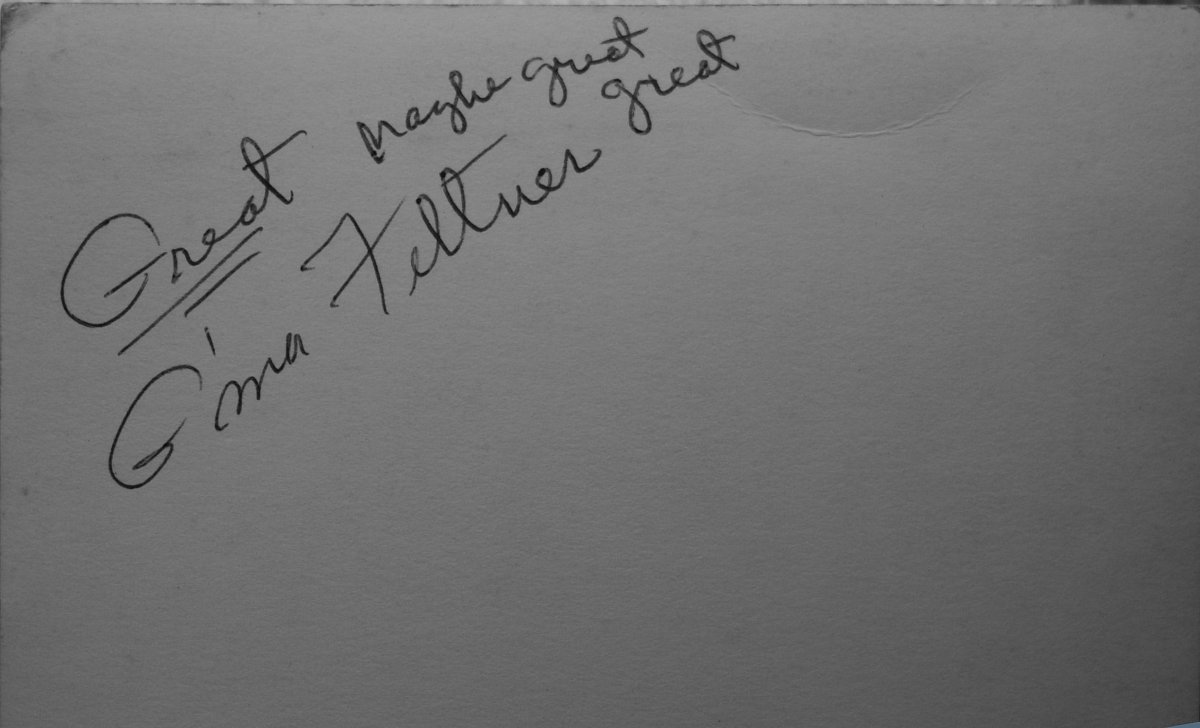 Great maybe great
great
G'ma Feltner